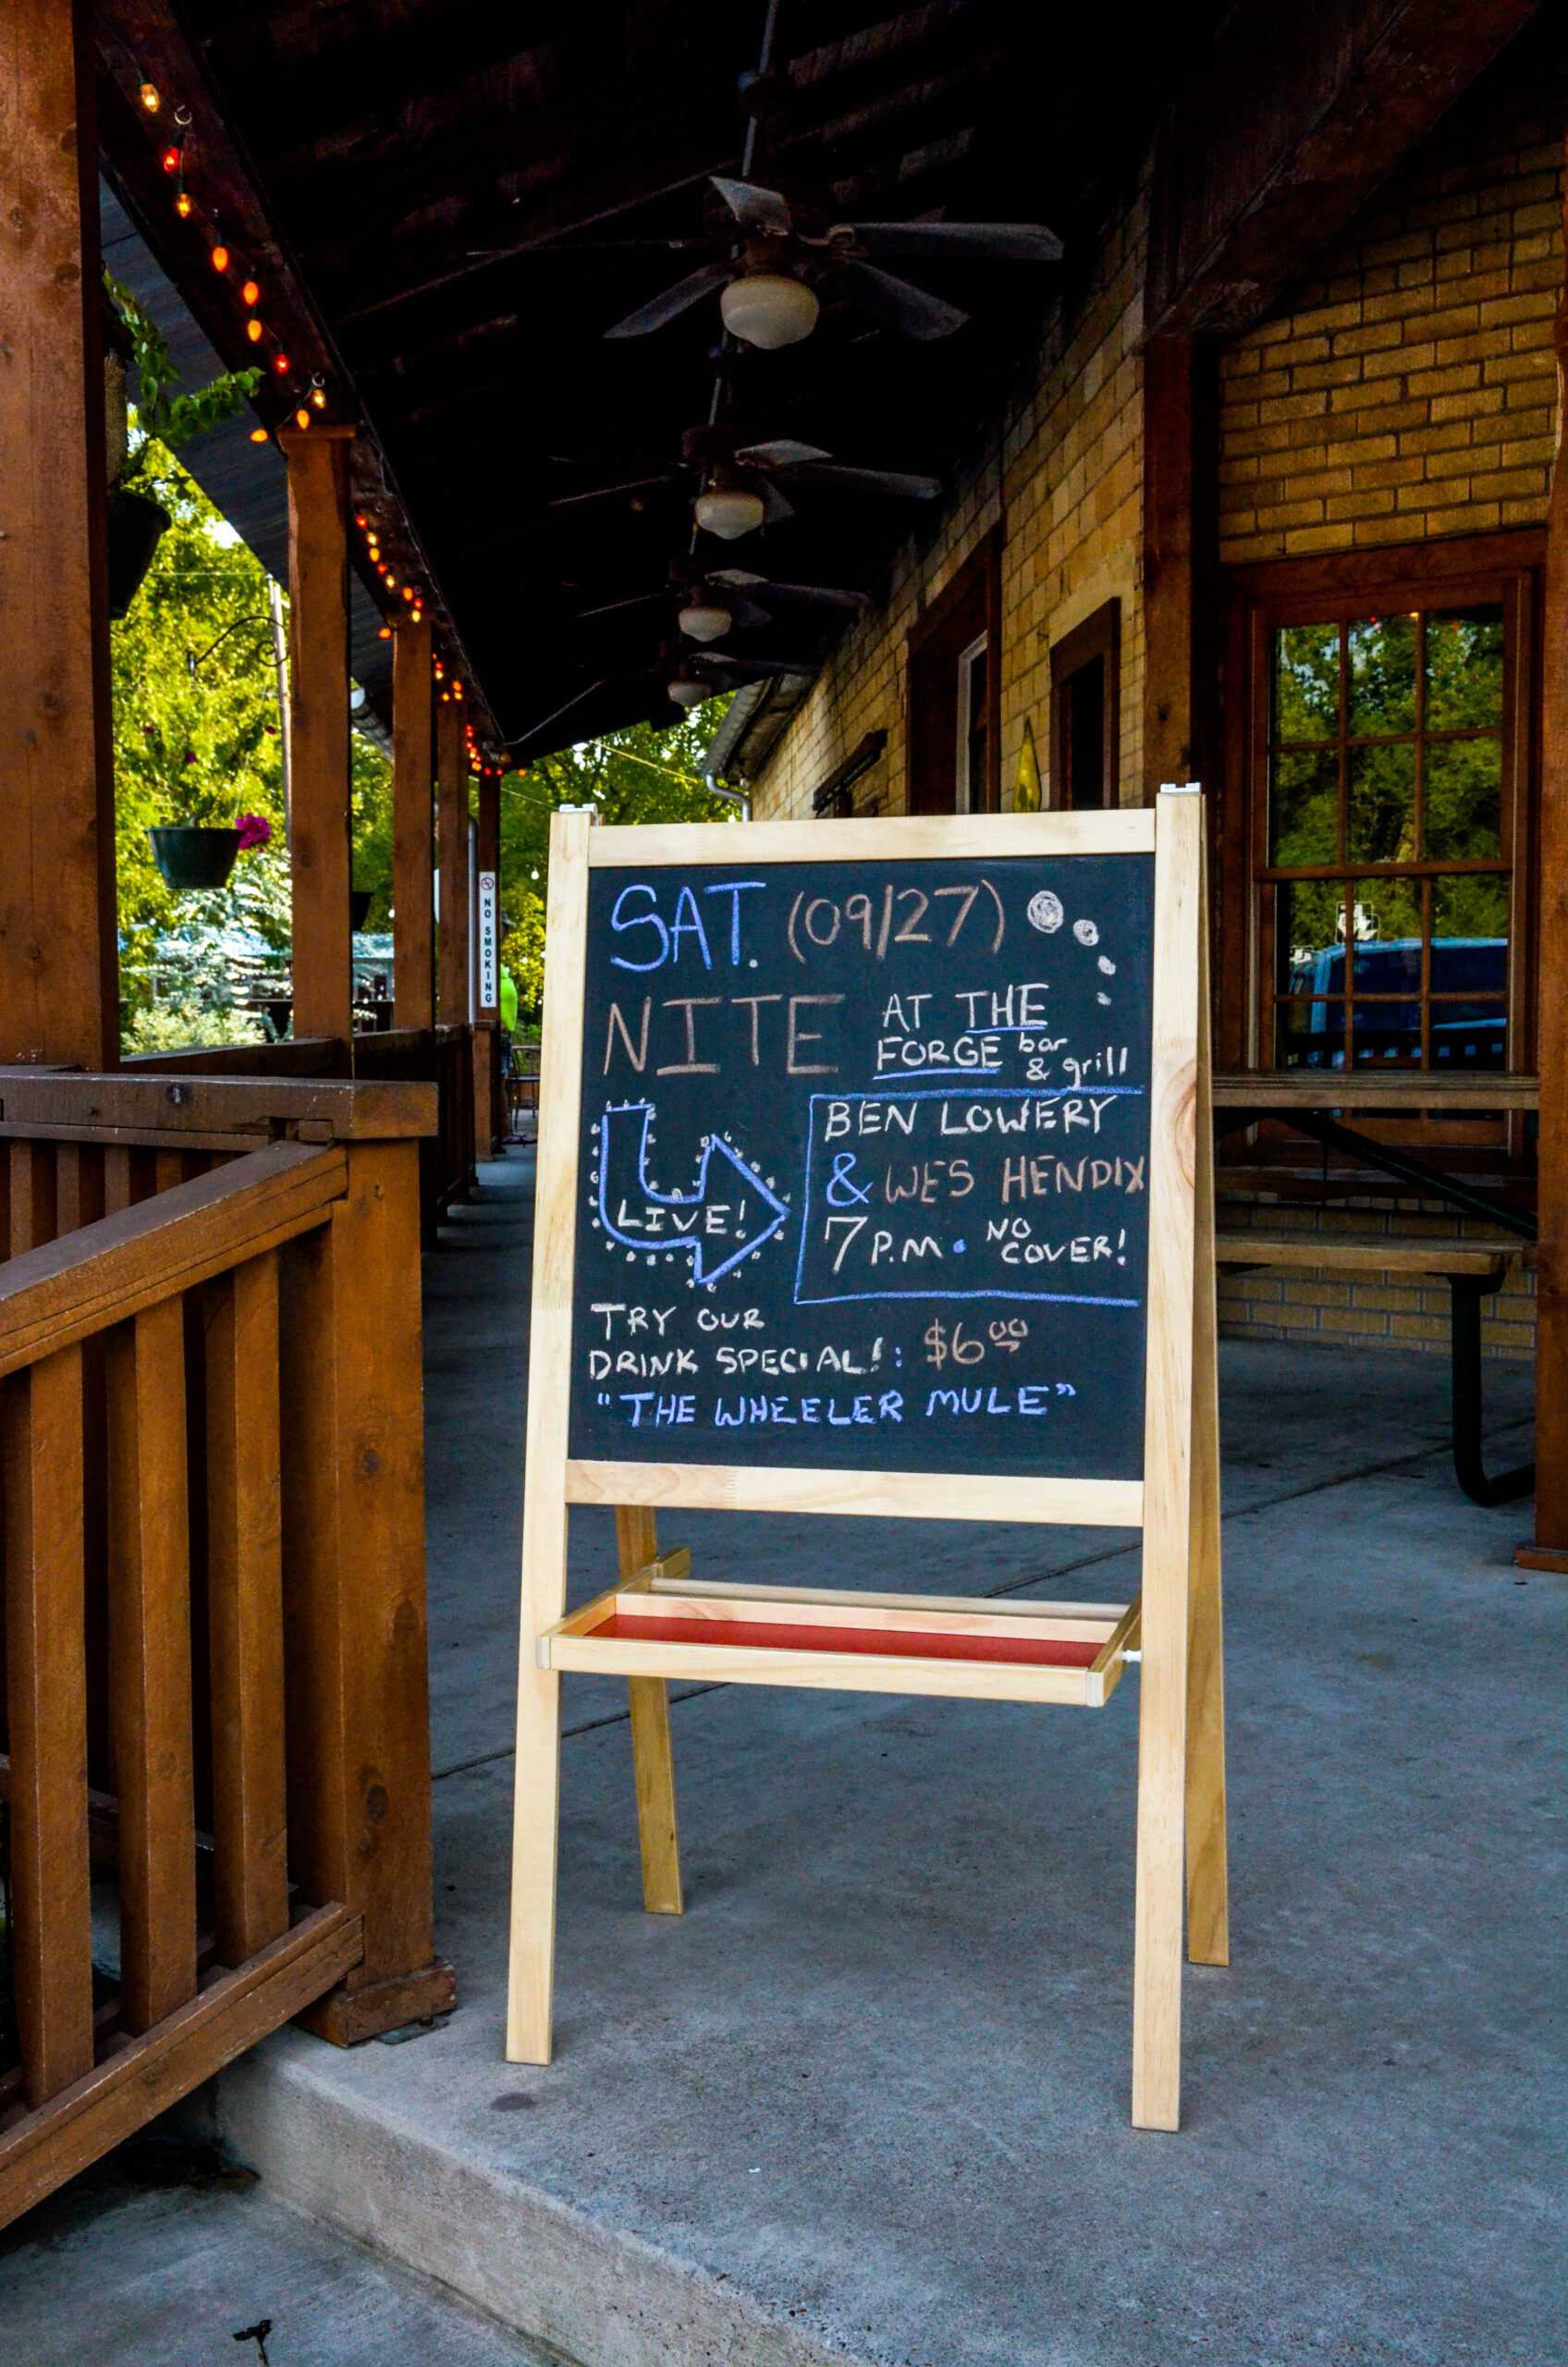 SAT. (09/27)
NITE AT THE
FORGE bar
& grill
LIVE!
BEN LOWERY
& WES HENDIX
7 P.M • NO
COVER!
TRY OUR
DRINK SPECIAL!: $6⁰⁰
"THE WHEELER MULE"
NO SMOKING